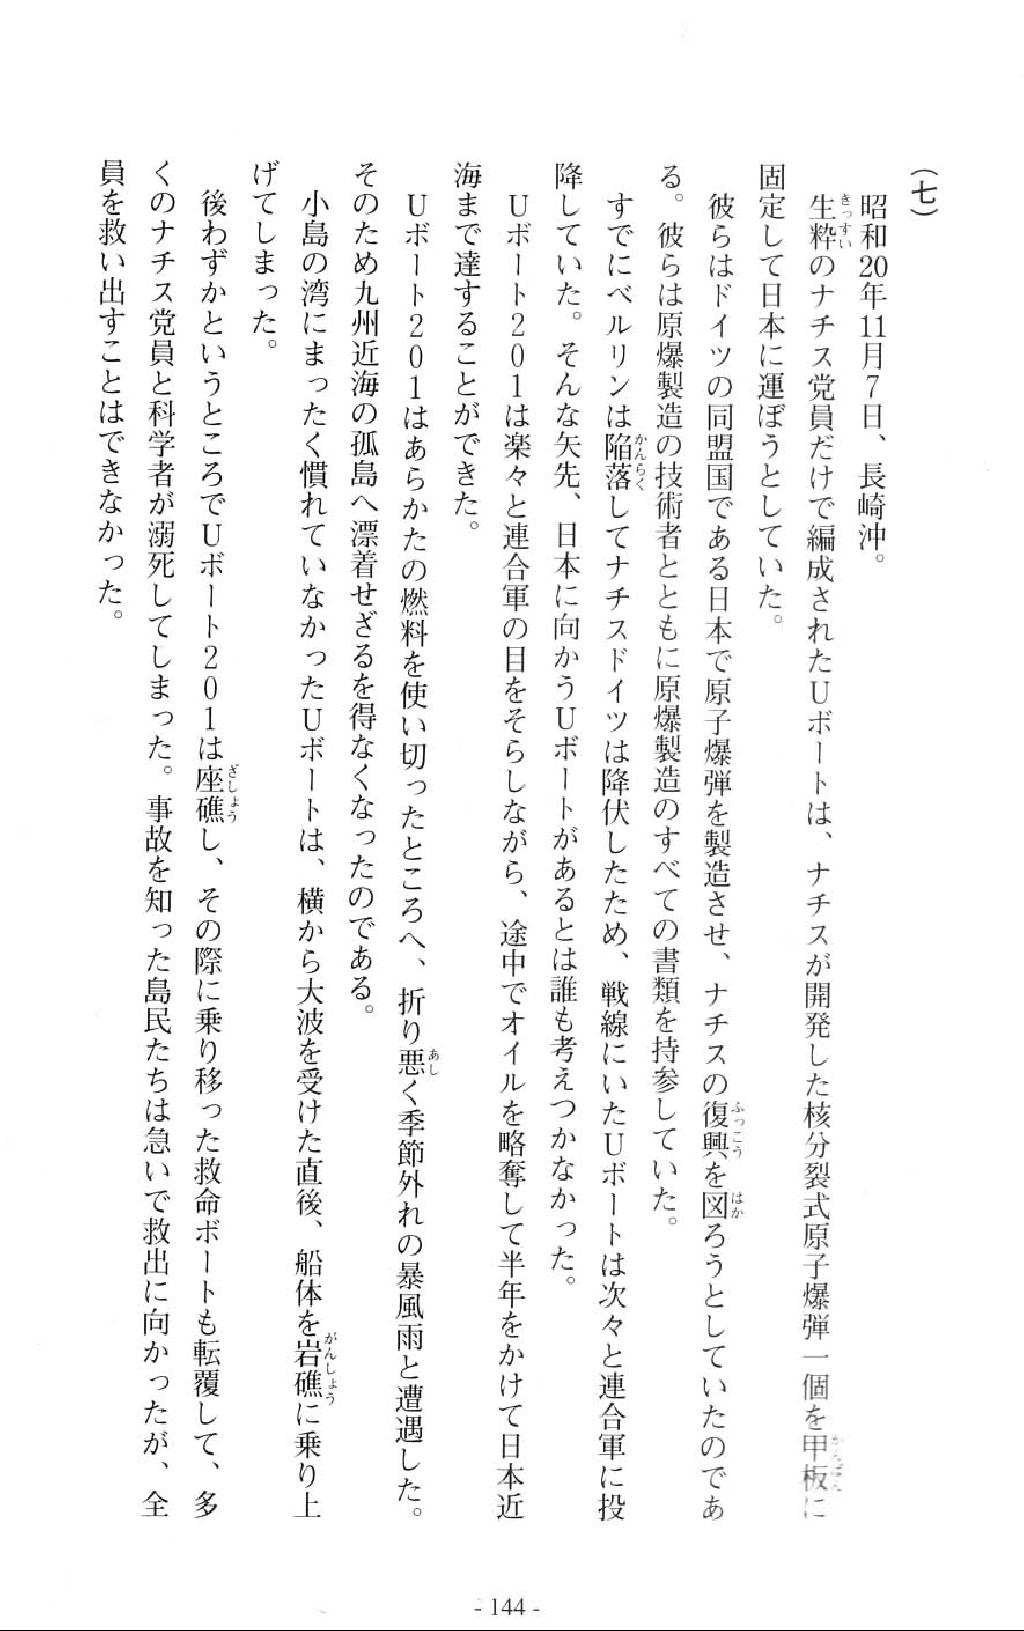 (七)
昭和20年11月7日、長崎沖。
生粋のナチス党員だけで編成されたUボートは、ナチスが開発した核分裂式原子爆弾一個を甲板に
固定して日本に運ぼうとしていた。
彼らはドイツの同盟国である日本で原子爆弾を製造させ、ナチスの復興を図ろうとしていたのであ
る。彼らは原爆製造の技術者とともに原爆製造のすべての書類を持参していた。
すでにベルリンは陥落してナチスドイツは降伏したため、戦線にいたUボートは次々と連合軍に投
降していた。そんな矢先、日本に向かうUボートがあるとは誰も考えつかなかった。
Uボート201は楽々と連合軍の目をそらしながら、途中でオイルを略奪して半年をかけて日本近
海まで達することができた。
Uボート201はあらかたの燃料を使い切ったところへ、折り悪く季節外れの暴風雨と遭遇した。
そのため九州近海の孤島へ漂着せざるを得なくなったのである。
小島の湾にまったく慣れていなかったUボートは、横から大波を受けた直後、船体を岩礁に乗り上
げてしまった。
後わずかというところでUボート201は座礁し、その際に乗り移った救命ボートも転覆して、多
くのナチス党員と科学者が溺死してしまった。事故を知った島民たちは急いで救出に向かったが、全
員を救い出すことはできなかった。
- 144 -